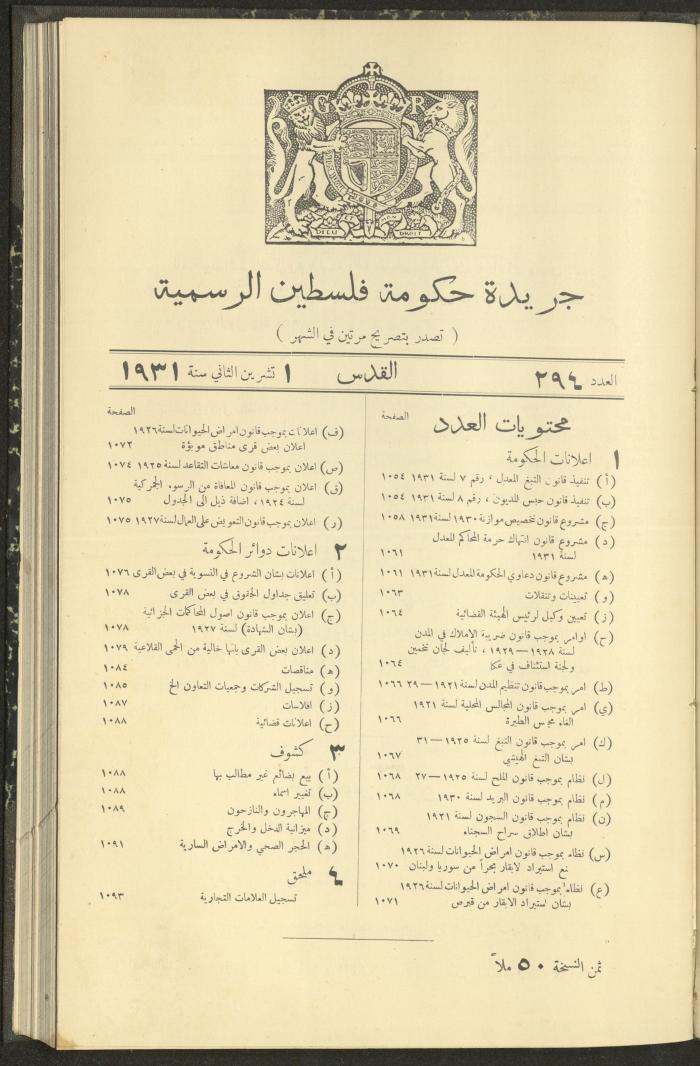 G R
DIEU ET MON DROIT
جريدة حكومة فلسطين الرسمية
( تصدر بتصريح مرتين في الشهر )
العدد ٢٩٤
القدس
١ تشرين الثاني سنة ١٩٣١
محتويات العدد
الصفحة
١ اعلانات الحكومة
(أ) تنفيذ قانون التبغ المعدل ، رقم ٧ لسنة ١٩٣١ ١٠٥٤
(ب) تنفيذ قانون حبس المديون ، رقم ٨ لسنة ١٩٣١ ١٠٥٤
(ج) مشروع قانون تخصيص موازنة ١٩٣٠ لسنة ١٩٣١ ١٠٥٨
(د) مشروع قانون انتهاك حرمة المحاكم المعدل
لسنة ١٩٣١ ١٠٦١
(ه) مشروع قانون دعاوي الحكومة المعدل لسنة ١٩٣١ ١٠٦١
(و) تعيينات وتنقلات ١٠٦٣
(ز) تعيين وكيل لرئيس الهيئة القضائية ١٠٦٤
(ح) اوامر بموجب قانون ضريبة الاملاك في المدن
لسنة ١٩٢٨ — ١٩٢٩ ، تأليف لجان تخمين
ولجنة استئناف في عكا ١٠٦٤
(ط) امر بموجب قانون تنظيم المدن لسنة ١٩٢١ — ٢٩ ١٠٦٦
(ي) امر بموجب قانون المجالس المحلية لسنة ١٩٢١
الغاء مجلس الطيرة ١٠٦٦
(ك) امر بموجب قانون التبغ لسنة ١٩٢٥ — ٣١
بشان التبغ الهيشي ١٠٦٧
(ل) نظام بموجب قانون الملح لسنة ١٩٢٥ — ٢٧ ١٠٦٨
(م) نظام بموجب قانون البريد لسنة ١٩٣٠ ١٠٦٨
(ن) نظام بموجب قانون السجون لسنة ١٩٢١
بشان اطلاق سراح السجناء ١٠٦٩
(س) نظام بموجب قانون امراض الحيوانات لسنة ١٩٢٦
منع استيراد الابقار بحراً من سوريا ولبنان ١٠٧٠
(ع) نظام بموجب قانون امراض الحيوانات لسنة ١٩٢٦
بشان استيراد الابقار من قبرص ١٠٧١
الصفحة
(ف) اعلانات بموجب قانون امراض الحيوانات لسنة ١٩٢٦
اعلان بعض قرى مناطق موبؤة ١٠٧٢
(ص) اعلان بموجب قانون معاشات التقاعد لسنة ١٩٢٥ ١٠٧٤
(ق) اعلان بموجب قانون المعافاة من الرسوم الجمركية
لسنة ١٩٢٤ ، اضافة ذيل الى الجدول ١٠٧٥
(ر) اعلان بموجب قانون التعويض على العمال لسنة ١٩٢٧ ١٠٧٥
٢ اعلانات دوائر الحكومة
(أ) اعلانات بشان الشروع في التسوية في بعض القرى ١٠٧٦
(ب) تعليق جداول الحقوق في بعض القرى ١٠٧٨
(ج) اعلان بموجب قانون اصول المحاكمات الجزائية
(بشان الشهادة) لسنة ١٩٢٧ ١٠٧٨
(د) اعلان بعض القرى بانها خالية من الحمى القلاعية ١٠٧٩
(ه) مناقصات ١٠٨٤
(و) تسجيل الشركات وجمعيات التعاون الخ ١٠٨٥
(ز) افلاسات ١٠٨٧
(ح) اعلانات قضائية ١٠٨٨
٣ كشوف
(أ) بيع بضائع غير مطالب بها ١٠٨٨
(ب) تغيير اسماء ١٠٨٨
(ج) المهاجرون والنازحون ١٠٨٩
(د) ميزانية الدخل والخرج
(ه) الحجر الصحي والامراض السارية ١٠٩١
٤ ملحق
تسجيل العلامات التجارية ١٠٩٣
ثمن النسخة ٥٠ ملاً